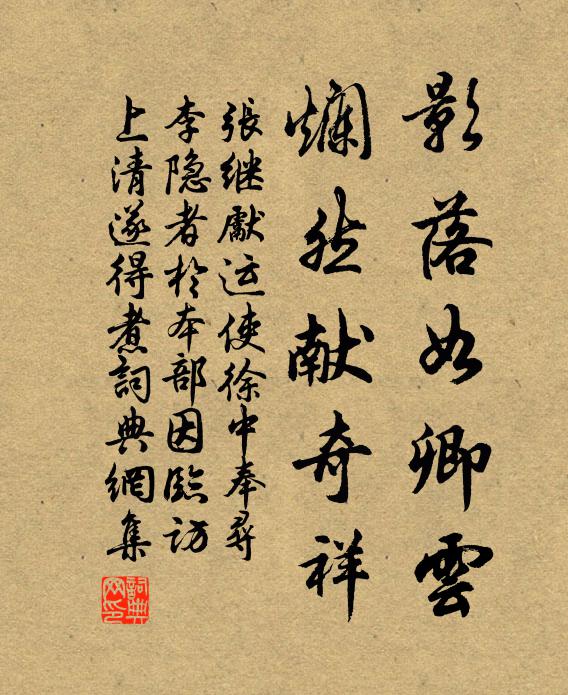 影落如卿雲
斓然献奇祥
張继獻运使徐中奉尋
李隐者於本部因臨访
上清遂得煮詞典網集
詞典
网印